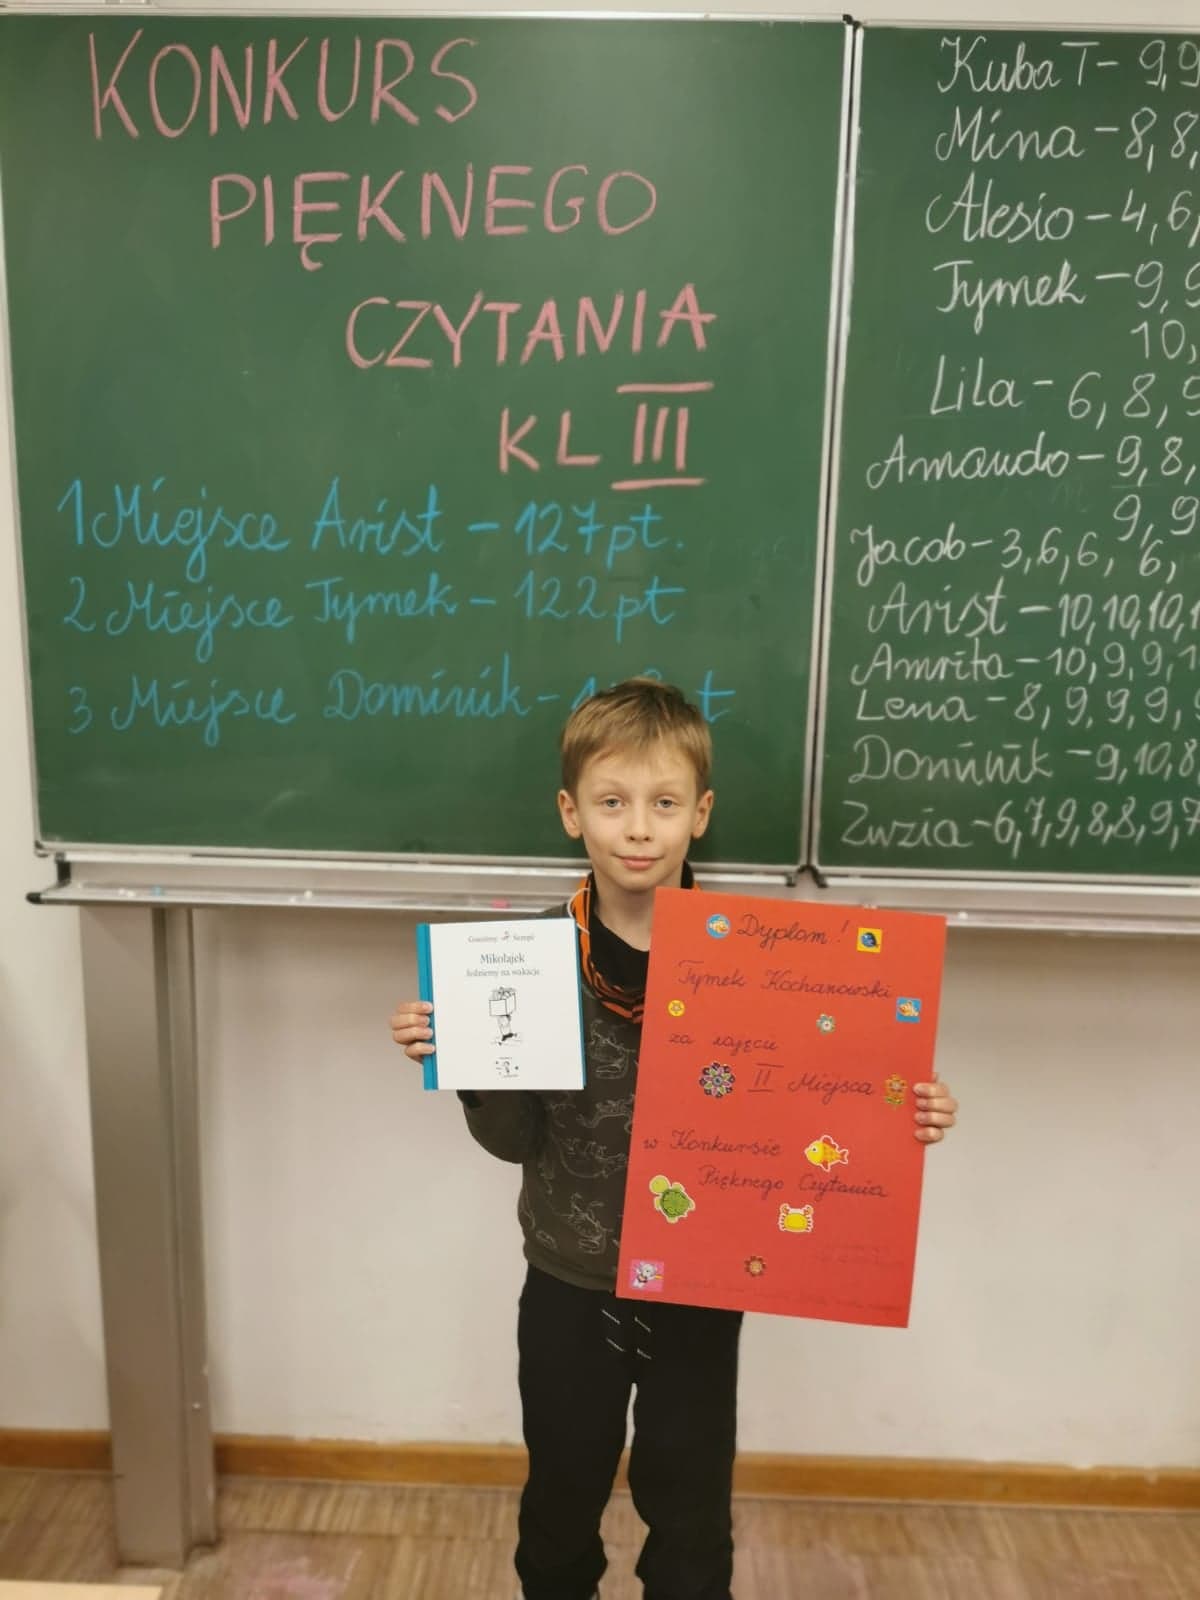 KONKURS
PIĘKNEGO
CZYTANIA
KL III
1 Miejsce Arist - 127 pt.
2 Miejsce Tymek - 122 pt
3 Miejsce Dominik - 1 t
Kuba T - 9,9
Mina - 8, 8,
Alesio - 4, 6,
Tymek - 9, 9
10,
Lila - 6, 8, 9
Amando - 9, 8,
9, 9
Jacob - 3, 6, 6, 6,
Arist - 10, 10, 10, 1
Amrita - 10, 9, 9, 1
Lena - 8, 9, 9, 9,
Dominik - 9, 10, 8
Zuzia - 6, 7, 9, 8, 8, 9, 7
Goscinny Sempé
Mikołajek
Jedziemy na wakacje
Dyplom!
Tymek Kochanowski
za zajęcie
II Miejsca
w Konkursie
Pięknego Czytania